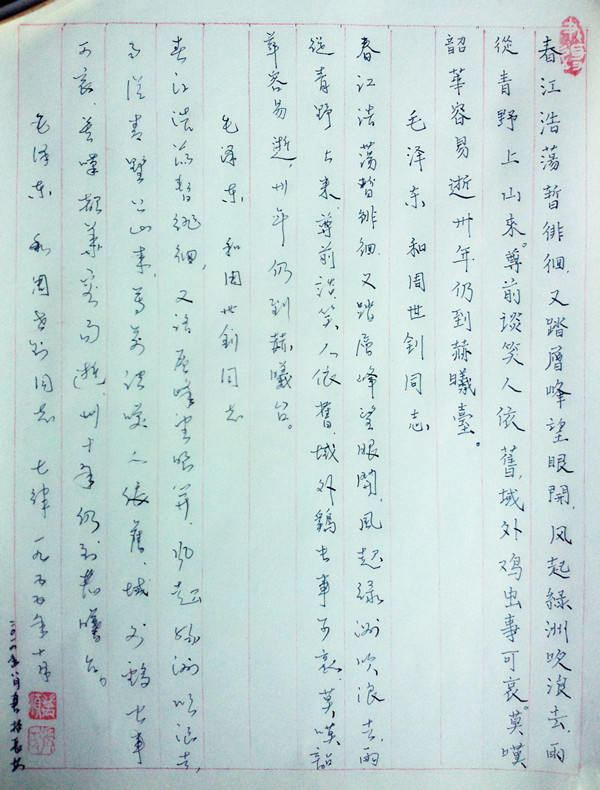 春江浩蕩暫徘徊.又踏層峰望眼開.风起綠洲吹浪去.雨
從青野上山來。尊前談笑人依舊,域外鸡虫事可哀。莫嘆
韶華容易逝卅年仍到赫曦臺。
毛泽东 和周世钊同志
春江浩蕩暫徘徊.又踏層峰望眼開.风起绿洲吹浪去.雨
從青野上来.尊前談笑人依舊.域外鷄虫事可哀.莫嘆韶
華容易逝卅年仍到赫曦台。
毛泽东 和周世钊同志
春江浩蕩暫徘徊,又踏层峰望眼开.风起绿洲吹浪去,
雨從青野上山来,尊前談笑人依舊.域外鷄虫事
可哀.莫嘆韶華容易逝,卅十年仍到赫曦台。
毛泽东 和周世钊同志 七律 一九五五年十月